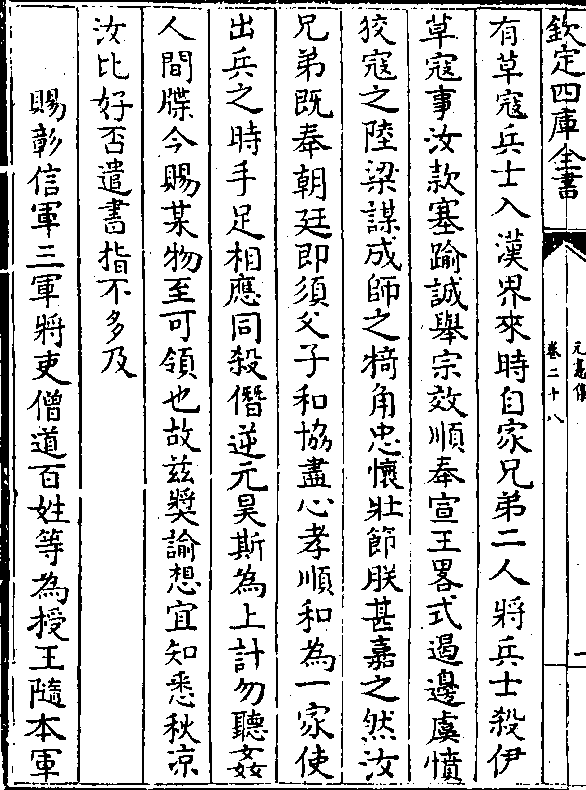 欽定四庫全書
卷二十八
有草寇兵士入漢界來時自家兄弟二人將兵士殺伊
草寇事汝款塞踰誠舉宗效順奉宣王畧式遏邊虞憤
狡寇之陸梁謀成師之犄角忠懷壯節朕甚嘉之然汝
兄弟既奉朝廷即須父子和協盡心孝順和為一家使
出兵之時手足相應同殺僭逆元昊斯為上計勿聽姦
人間牒今賜某物至可領也故茲奬諭想宜知悉秋涼
汝比好否遣書指不多及
賜彰信軍三軍將吏僧道百姓等為授王隨本軍